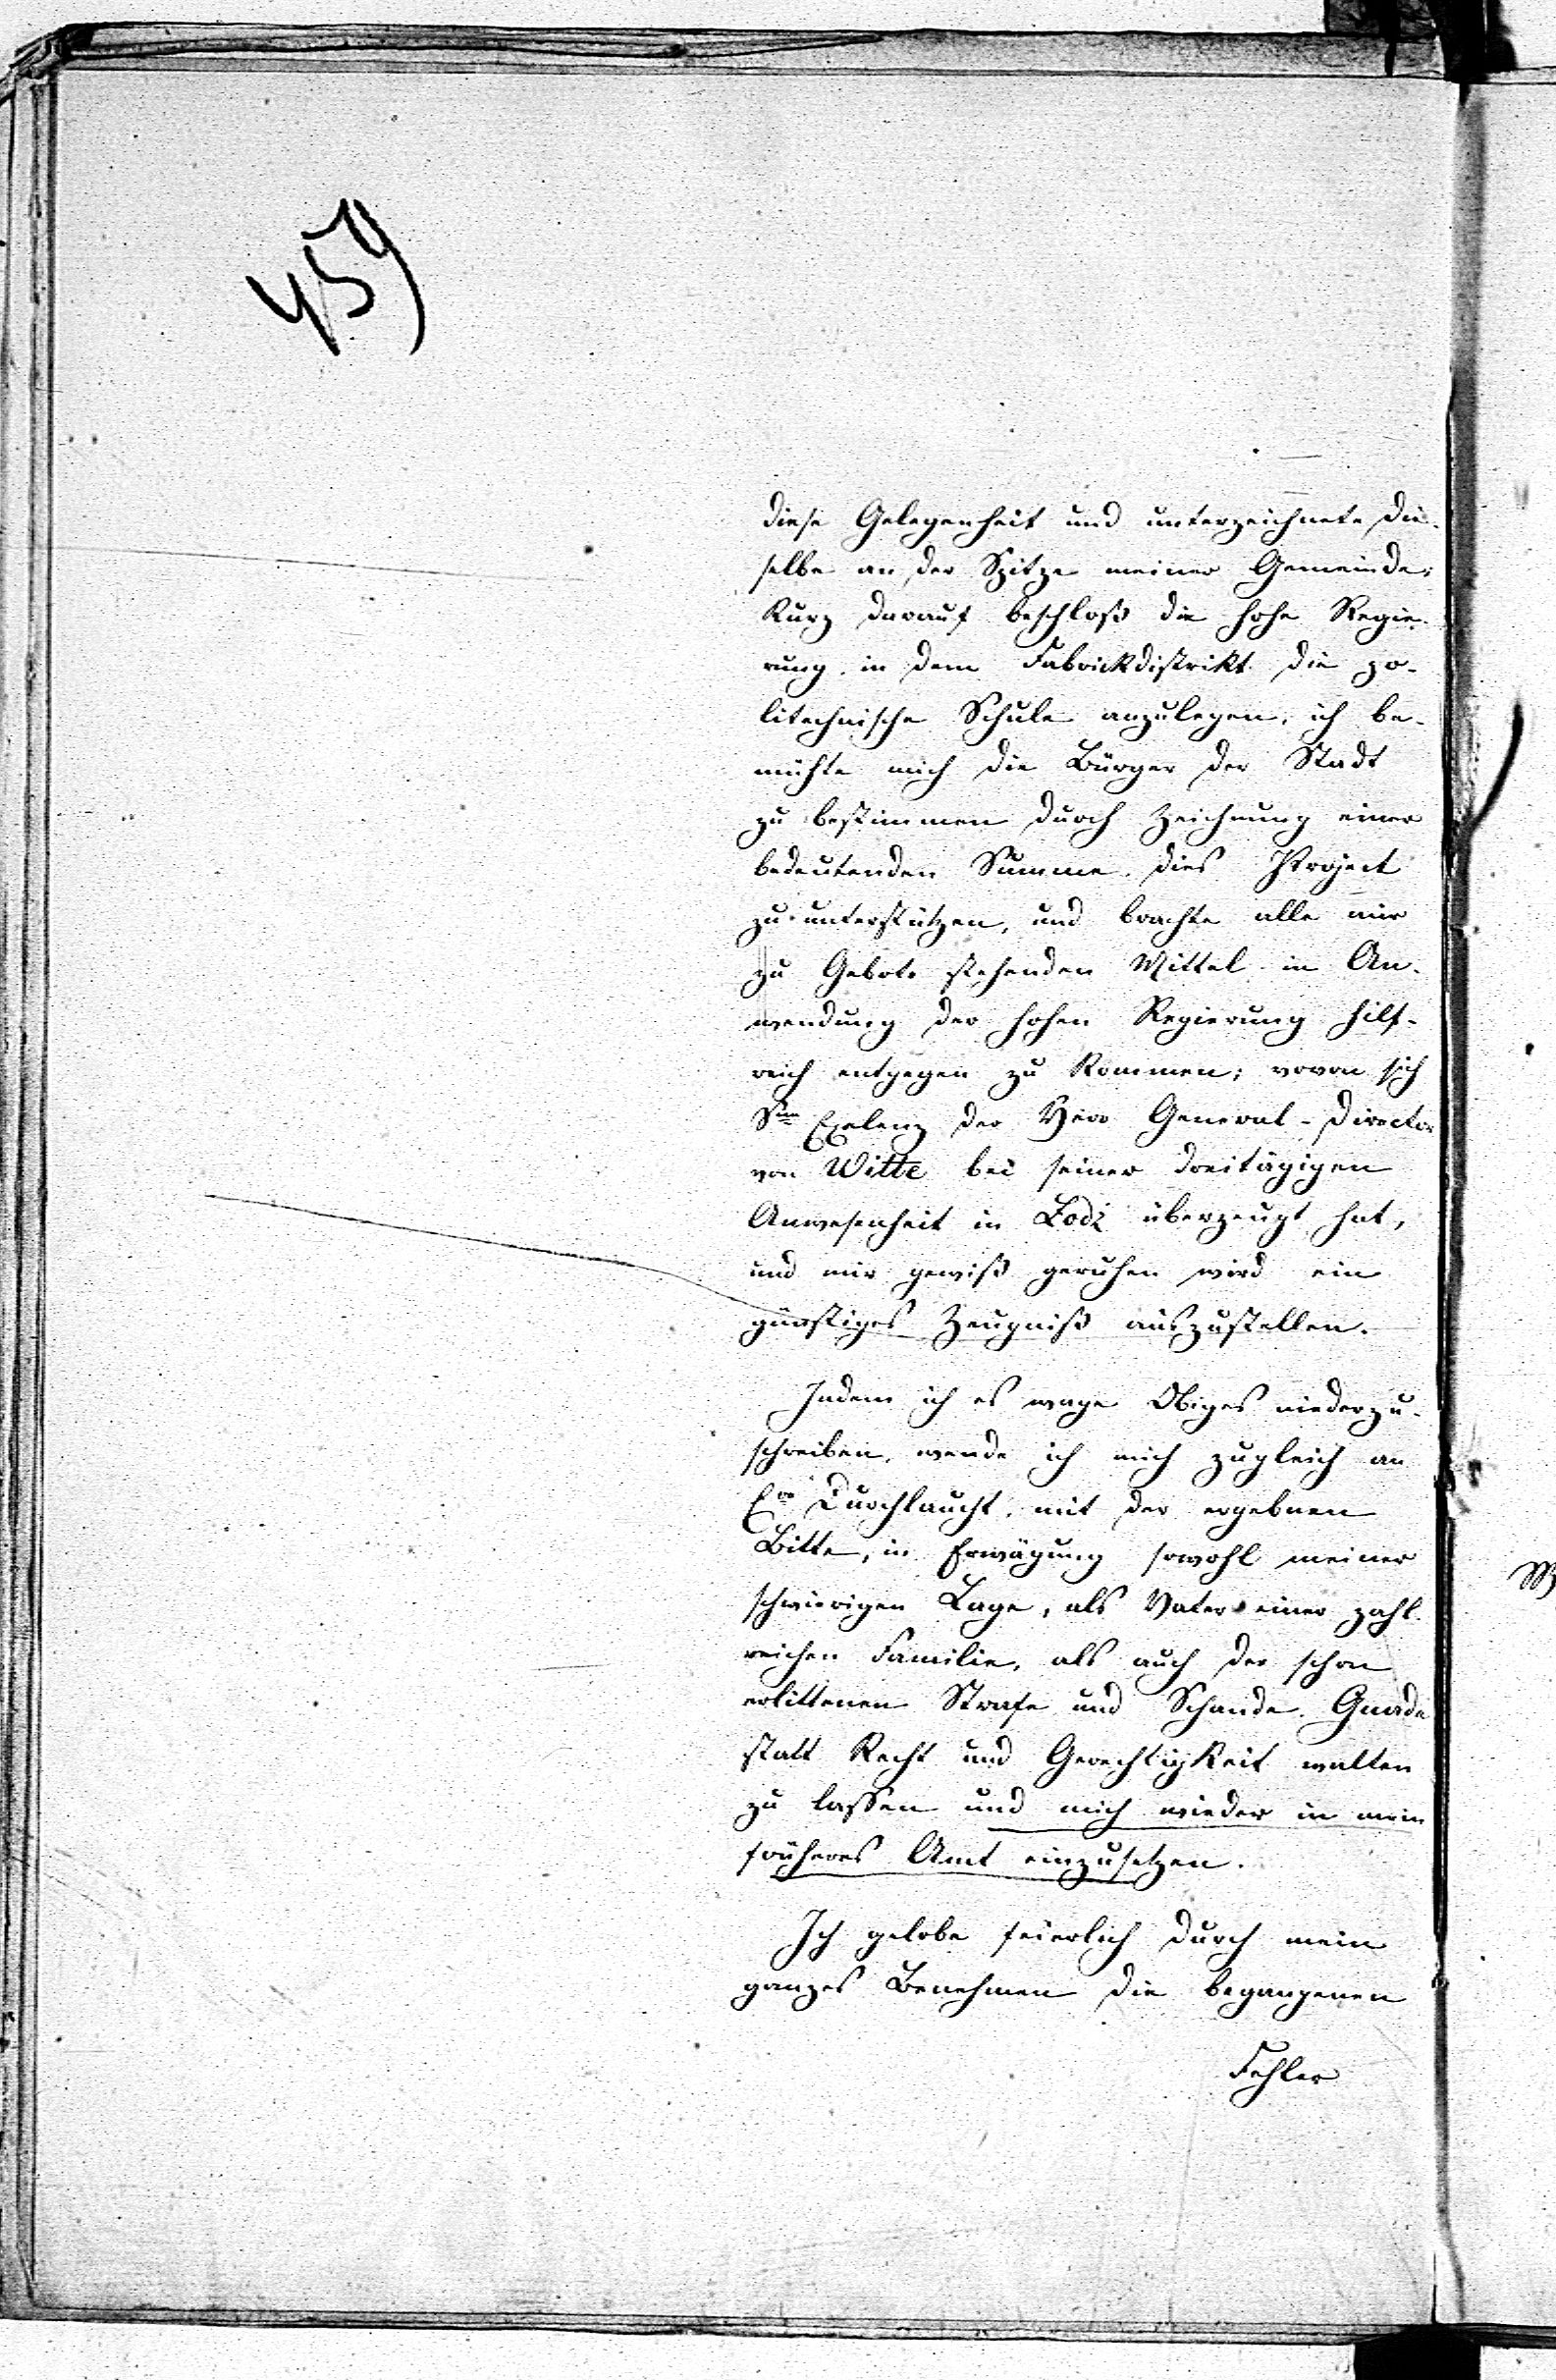 459
diese Gelegenheit und unterzeichnete die-
selbe an der Spitze meiner Gemeinde;
Kurz darauf beschloß die hohe Regie-
rung in dem Fabrickdistrikt die po-
litechnische Schule anzulegen, ich be-
mühte mich die Bürger der Stadt
zu bestimmen durch Zeichnung einer
bedeutenden Summe dies Project
zu unterstützen, und brachte alle mir
zu Gebote stehenden Mittel in An-
wendung der hohen Regierung hilf-
reich entgegen zu kommen; wovon sich
Sne Exelenz der Herr General-Director
von Witte bei seiner dreitägigen
Anwesenheit in Łodź überzeugt hat,
und mir gewiß geruhen wird ein
günstiges Zeugniß auszustellen.
Indem ich es wage Obiges niederzu-
schreiben, wende ich mich zugleich an
Ew Durchlaucht, mit der ergebnen
Bitte, in Erwägung sowohl meiner
schwierigen Lage, als Vater einer zahl-
reichen Familie, als auch der schon
erlittenen Strafe und Schande, Gnade
statt Recht und Gerechtigkeit walten
zu lassen und mich wieder in mein
früheres Amt einzusetzen.
Ich gelobe feierlich durch mein
ganzes Benehmen die begangenen
Fehler